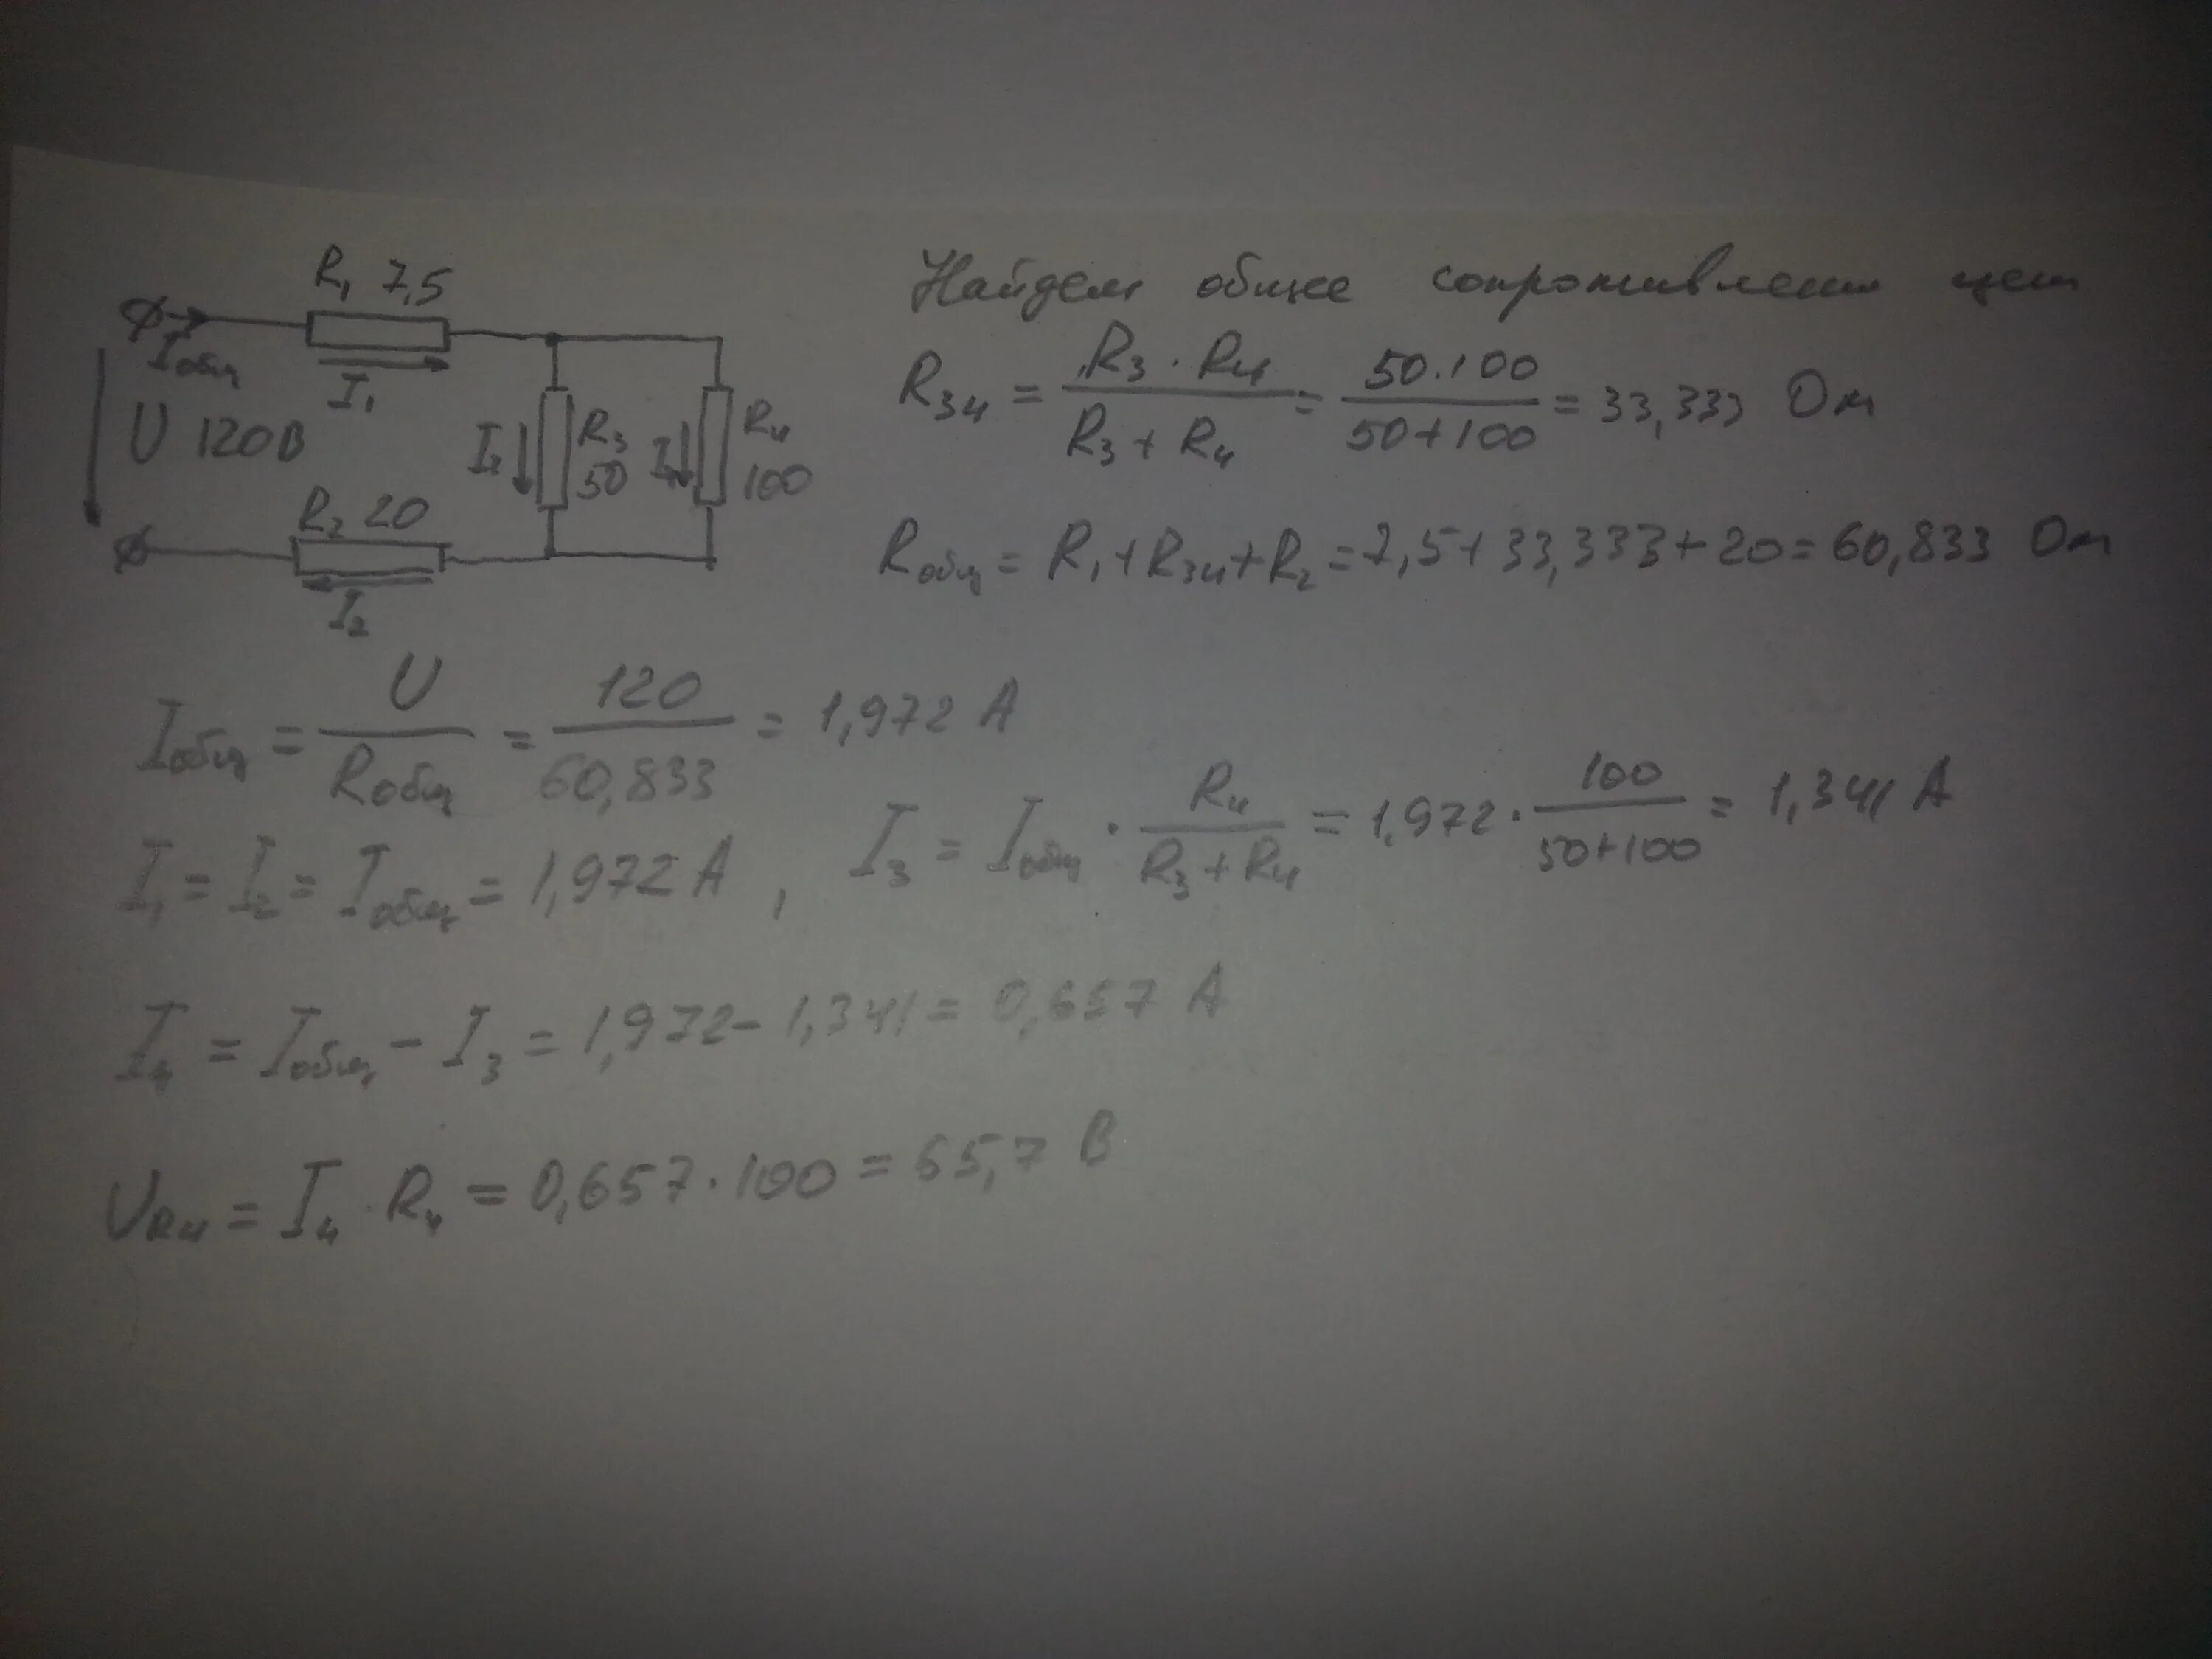 R₁ 7,5
Iобщ
I₁
U 120В
I₃
R₃
50
I₄
R₄
100
R₂ 20
I₂
Найдем общее сопротивление цепи
R₃₄ = R₃ · R₄ / R₃ + R₄ = 50·100 / 50+100 = 33,333 Ом
Rобщ = R₁+R₃₄+R₂ = 7,5+33,333+20 = 60,833 Ом
Iобщ = U / Rобщ = 120 / 60,833 = 1,972 А
I₁ = I₂ = Iобщ = 1,972 А , I₃ = Iобщ · R₄ / R₃+R₄ = 1,972 · 100 / 50+100 = 1,341 А
I₄ = Iобщ – I₃ = 1,972 – 1,341 = 0,657 А
UR₄ = I₄ · R₄ = 0,657 · 100 = 65,7 В